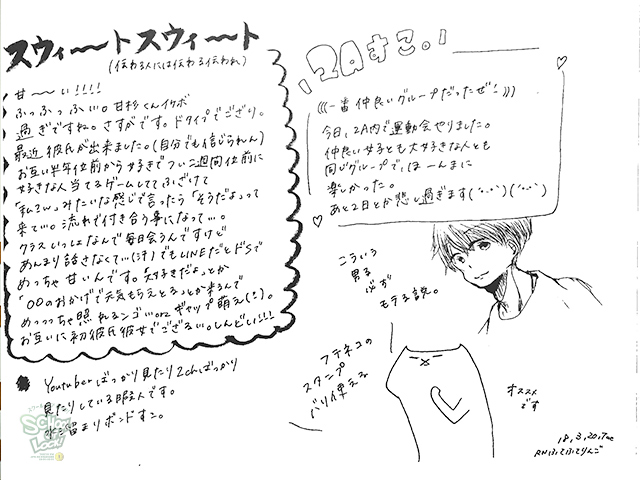 スウィ〜〜トスウィ〜〜ト
(伝わる人には伝わる伝われ)
甘〜〜い!!!!
ふっふっふふい。甘杉くんイケボ
過ぎですね。さすがです。ドタイプでござり。
最近彼氏が出来ました。(自分でも信じられん)
お互い半年位前から好きでついこ週間位前に
好きな人当てるゲームしててふざけて
みたいな感じで言ったら「そうだよ」って
来て…。流れで付き合う事になって…。
クラスいっしょなんで毎日会うんですけど
あんまり話さなくて…(汗)でもLINEだとドSで
めっちゃ甘いんです。「好きだよ」とか
「○○のおかげで元気もらえとる」とか来るんで
めっっっちゃ照れるンゴ…orz ギャップ萌え
お互いに初彼氏彼女でござる…。しんどい!!!
Youtuberばっかり見たり2chばっかり
見たりしている暇人です。
水溜まりボンドすこ。
2Aすこ。!
(((一番仲良いグループだったぜ!)))
今日、2A内で運動会やりました。
仲良い女子とも大好きな人とも
同じグループで、ほーんまに
楽しかった。
あと2日とか悲し過ぎます
こういう
男る
必ず
モテる説。
フテネコの
スタンプ
バリ使える
オススメ
です
18.3.20.Tue
RNふてふてりんご
SCHOOL
LOCK!